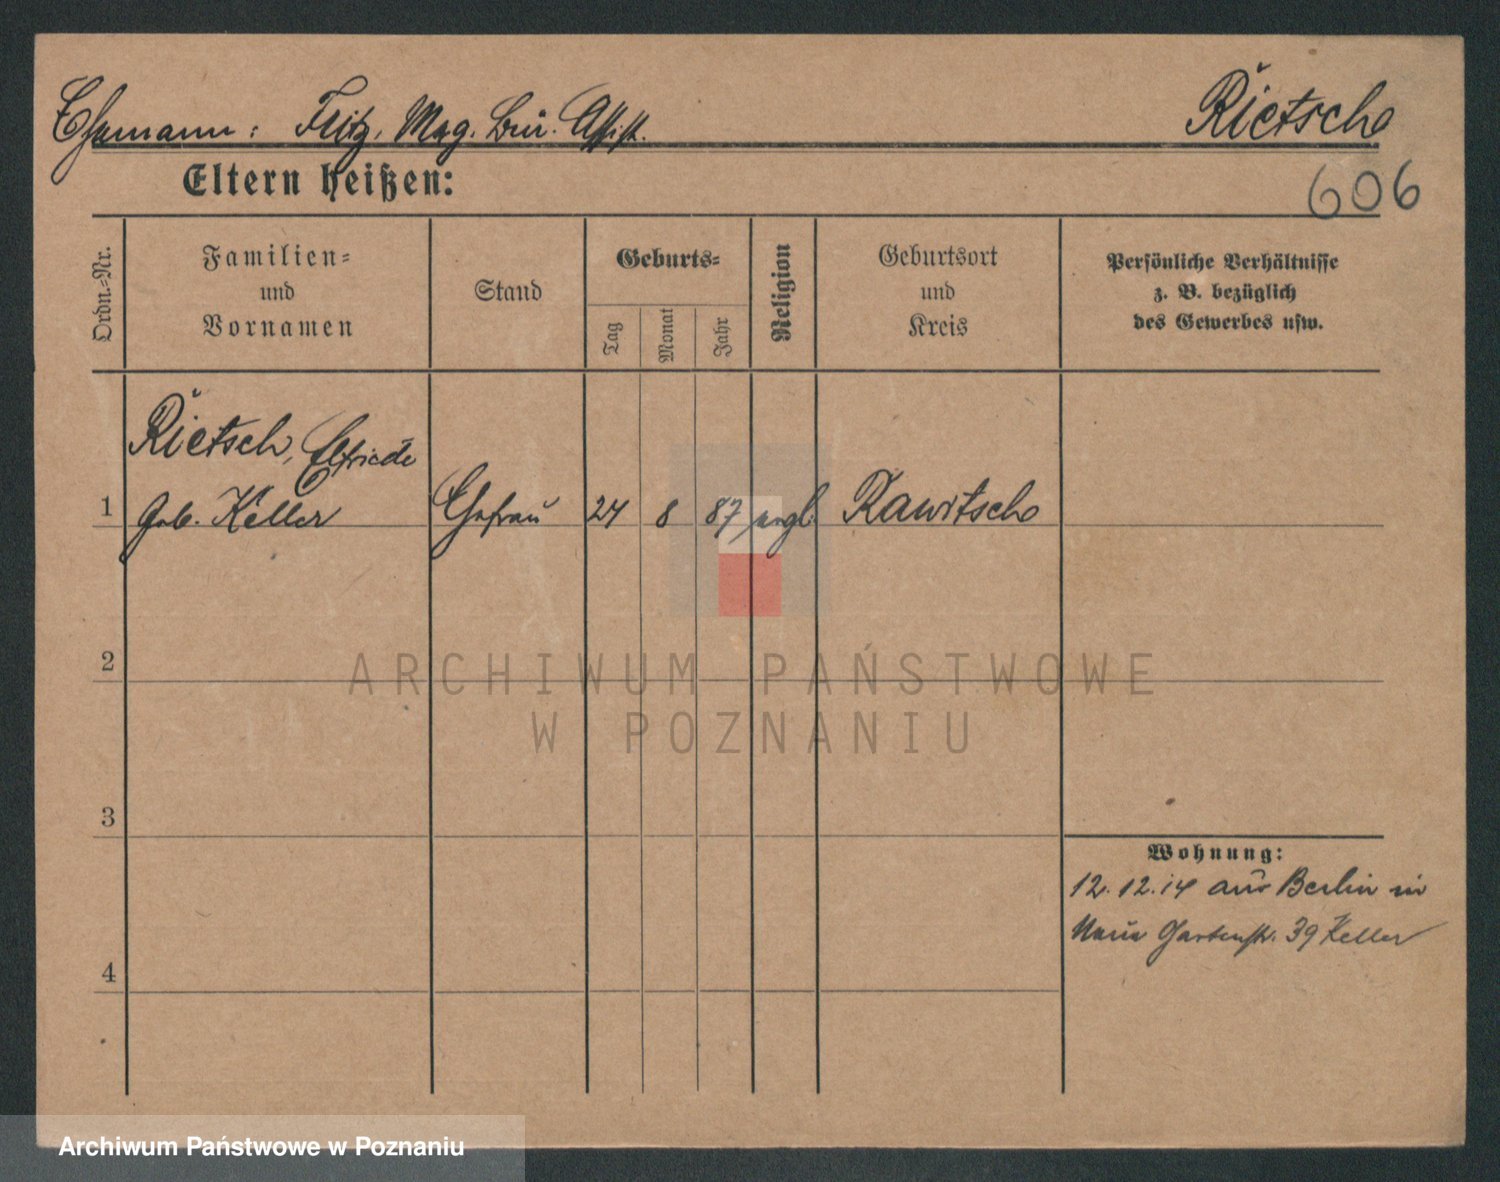 Rietsch
Ehemann: Fritz, Mag. Bür. Assist.
Eltern heißen:
606
Ordn.-Nr.
Familien-
und
Vornamen
Stand
Geburts-
Tag
Monat
Jahr
Religion
Geburtsort
und
Kreis
Persönliche Verhältnisse
z. B. bezüglich
des Gewerbes usw.
Rietsch, Elfriede
1 geb. Keller Ehefrau 24 8 87 evgl. Rawitsch
2
ARCHIWUM PAŃSTWOWE
W POZNANIU
3
Wohnung:
12.12.14 aus Berlin in
Neue Gartenstr. 39 Keller
4
Archiwum Państwowe w Poznaniu